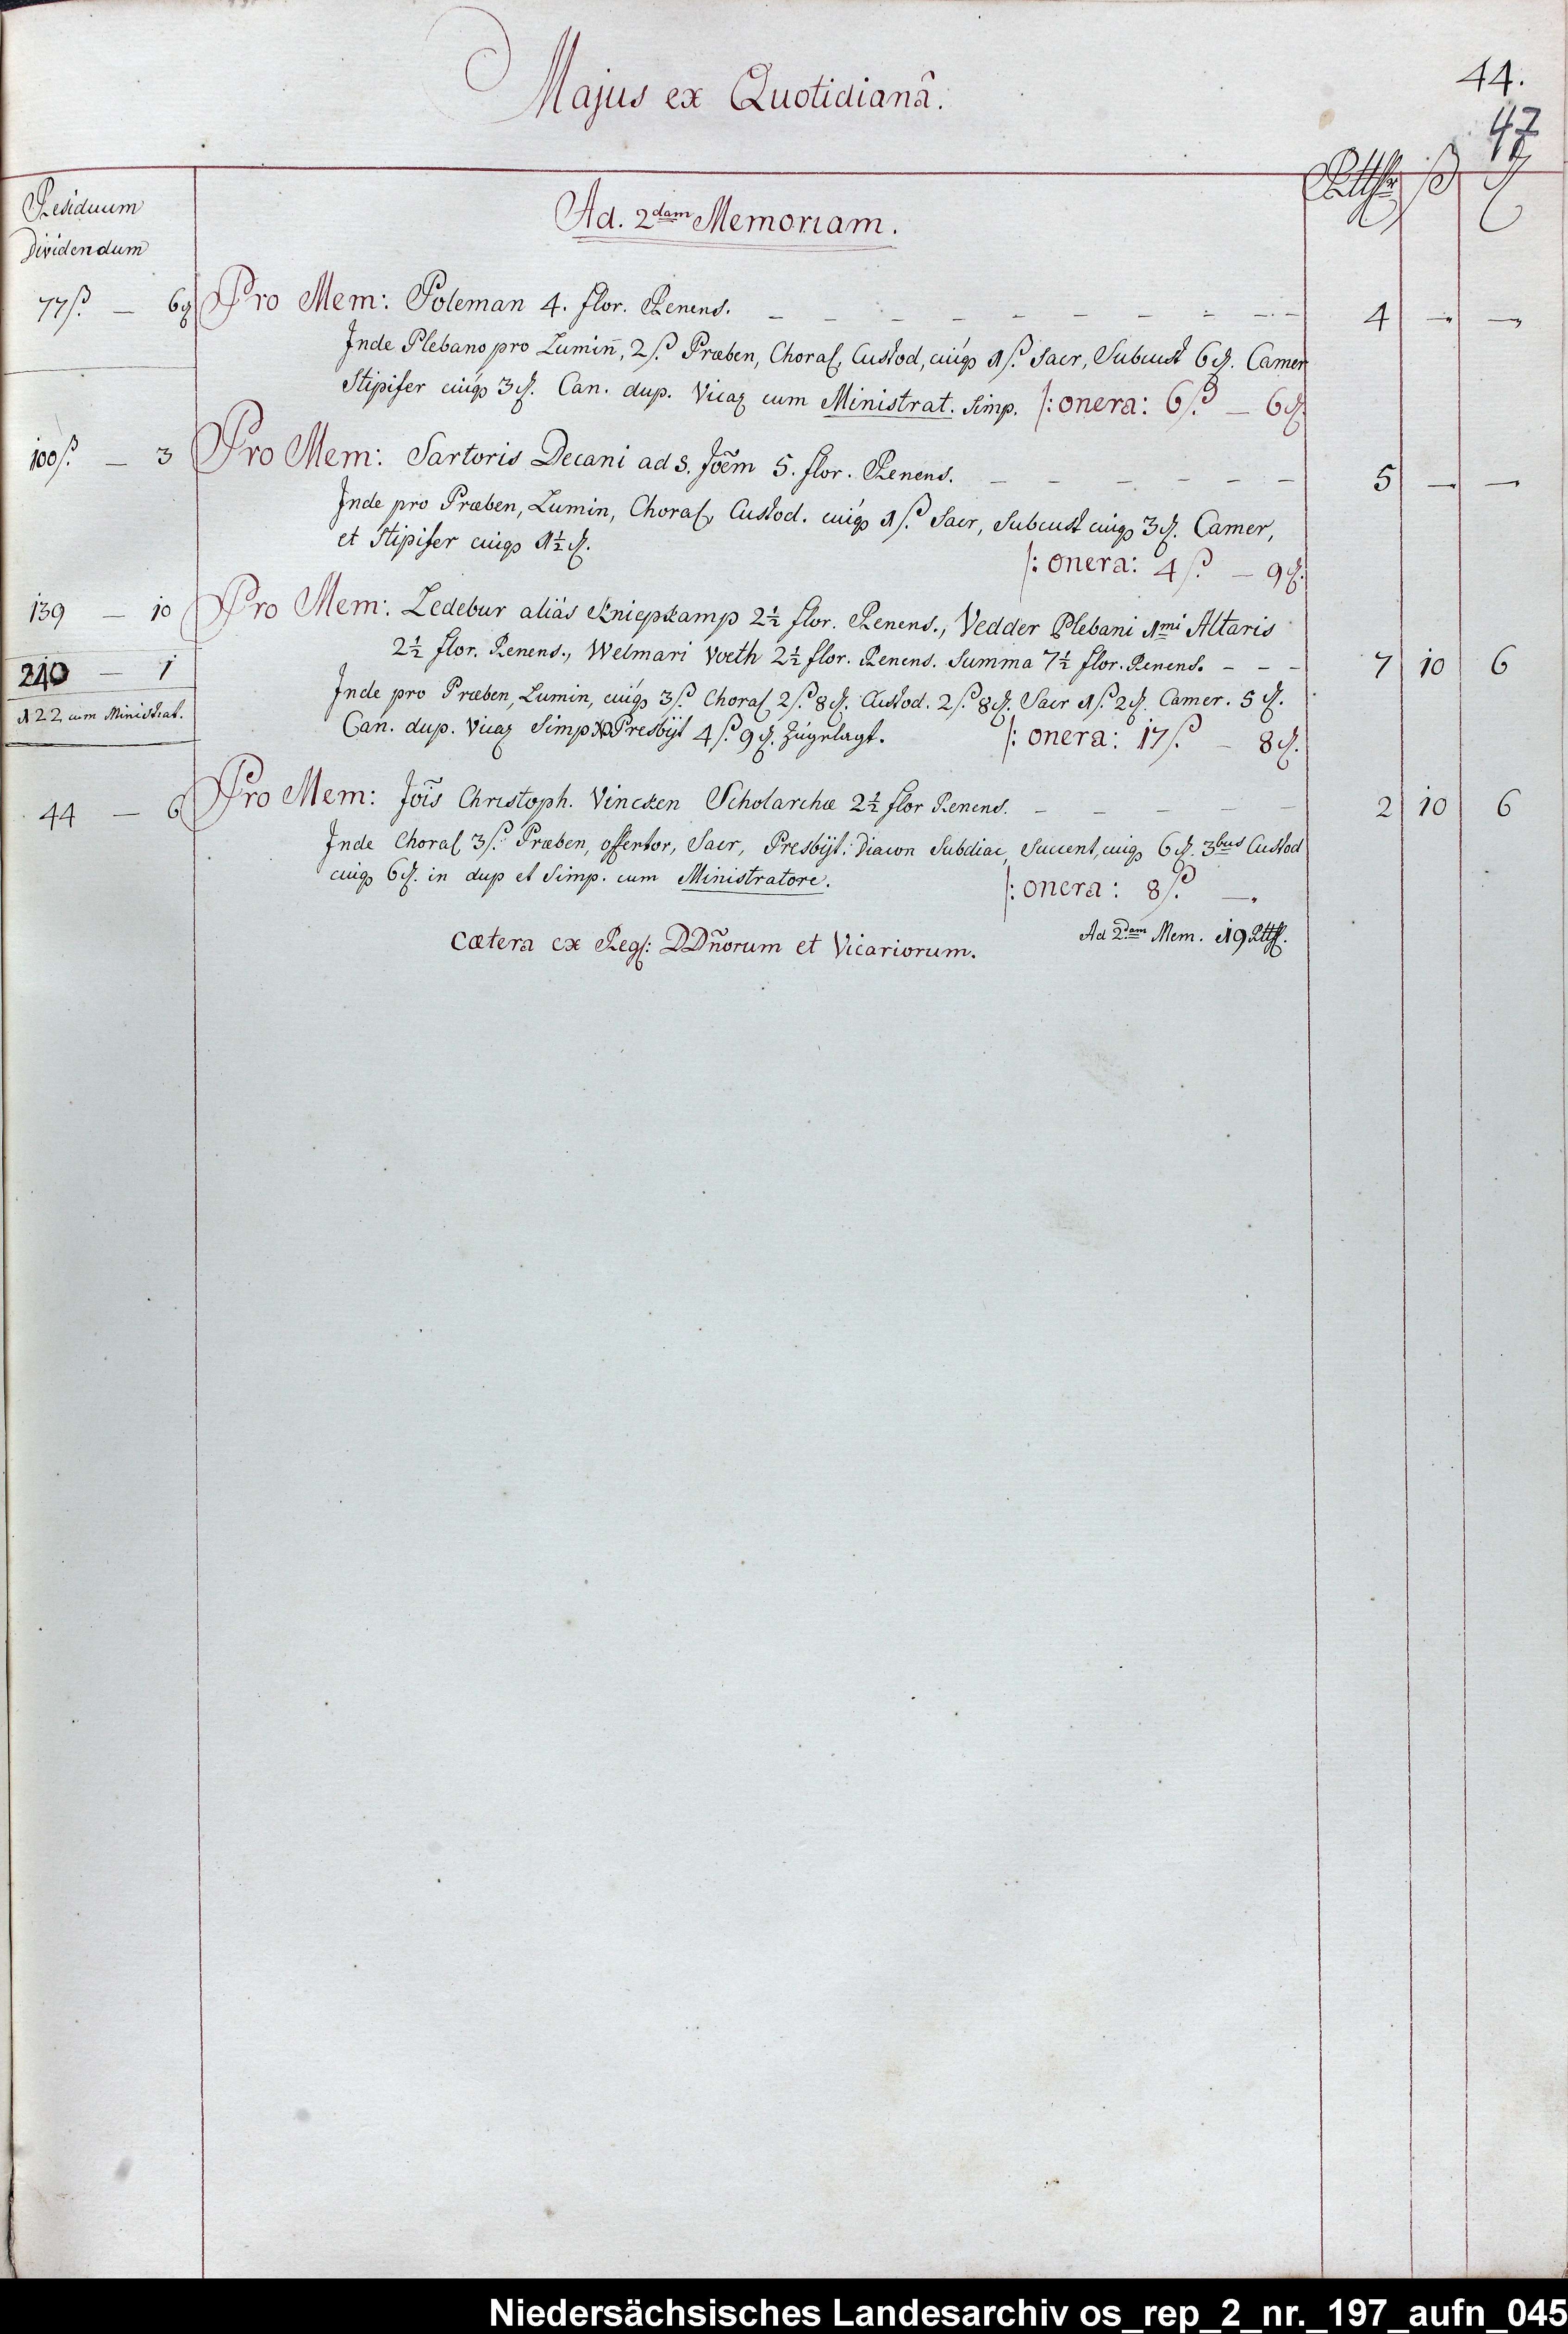 Majus ex Quotidianâ.
44.
47
Residuum
Dividendum
Rthlr ß ₰
Ad. 2dam Memoriam.
77 ß. — 6 ₰ Pro Mem: Poleman 4. flor. Renens. 4 — —
Inde Plebano pro Lumiñ, 2 ß. Præben, Choral, Custod, cuiq3 1 ß. Sacr, Subcust 6 ₰. Camer
Stipifer cuiq3 3 ₰. Can. dup. Vicar cum Ministrat. Simp. |: onera: 6 ß. — 6 ₰.
100 ß. — 3 Pro Mem: Sartoris Decani ad S. Joẽm 5. flor. Renens. 5 — —
Inde pro Præben, Lumin, Choral, Custod. cuiq3 1 ß. Sacr, Subcust cuiq3 3 ₰. Camer,
et Stipifer cuiq3 1½ ₰.
|: onera: 4 ß. — 9 ₰.
139 — 10 Pro Mem: Ledebur aliàs Kniepkamp 2½ flor. Renens., Vedder Plebani 1mi Altaris
2½ flor. Renens., Welmari Voeth 2½ flor. Renens. Summa 7½ flor. Renens. - - - 7 10 6
240 — 1
122 cum Ministrat.
Inde pro Præben, Lumin, cuiq3 3 ß. Choral 2 ß. 8 ₰. Custod. 2 ß. 8 ₰. Sacr 1 ß. 2 ₰. Camer. 5 ₰.
Can. dup. Vicar Simp Presbijt 4 ß. 9 ₰. Zugelagt. |: onera: 17 ß. — 8 ₰.
44 — 6 Pro Mem: Joĩs Christoph. Vincken Scholarchæ 2½ flor Renens. 2 10 6
Inde Choral 3 ß. Præben, offertor, Sacr, Presbijt: Diacon Subdiac, Succent, cuiq3 6 ₰. 3bus Custod
cuiq3 6 ₰. in dup et Simp. cum Ministratore.
|: onera: 8 ß. —.
Cætera ex Regl: DDñorum et Vicariorum.
Ad 2dam Mem. 19 Rthl.
Niedersächsisches Landesarchiv os_rep_2_nr._197_aufn_045